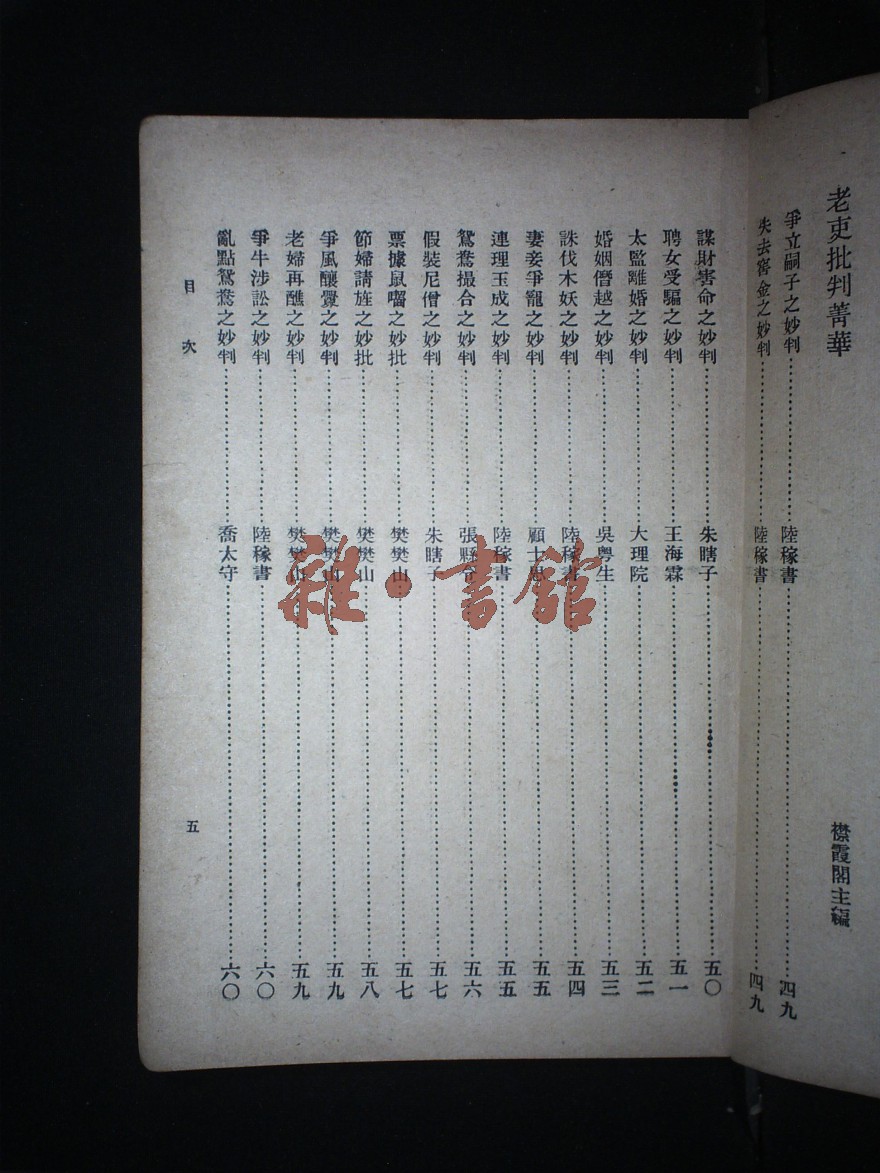 老吏批判菁華
襟霞閣主編
爭立嗣子之妙判……陸稼書……四九
失去窖金之妙判……陸稼書……四九
謀財害命之妙判……朱瞎子……五〇
聘女受騙之妙判……王海霖……五一
太監離婚之妙判……大理院……五二
婚姻僭越之妙判……吳粤生……五三
誅伐木妖之妙判……陸稼書……五四
妻妾爭寵之妙判……顧士思……五五
連理玉成之妙判……陸稼書……五五
鴛鴦撮合之妙判……張縣令……五六
假裝尼僧之妙判……朱瞎子……五七
票據鼠囓之妙批……樊樊山……五七
節婦請旌之妙批……樊樊山……五八
爭風釀釁之妙判……樊樊山……五九
老婦再醮之妙判……樊樊山……五九
爭牛涉訟之妙判……陸稼書……六〇
亂點鴛鴦之妙判……喬太守……六〇
目次
五
雜·書舘